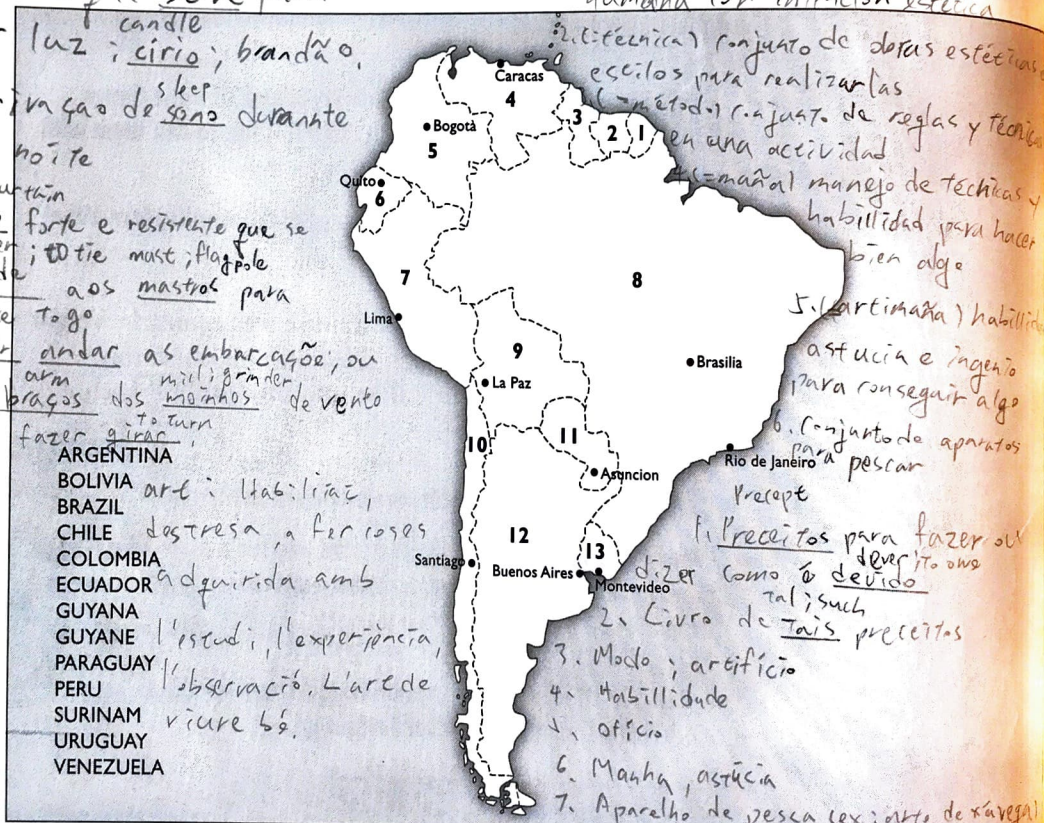 candle
luz ; círio ; brandão,
sleep
de sono durante
noite
forte e resistente que se
; to tie mast ; flagpole
aos mastros para
to go
andar as embarcaçõe, ou
arm mill; grinder
braços dos moinhos de vento
to turn
fazer girar,
ARGENTINA
BOLIVIA
BRAZIL
CHILE
COLOMBIA
ECUADOR
GUYANA
GUYANE
PARAGUAY
PERU
SURINAM
URUGUAY
VENEZUELA
art :
destresa, a fer coses
adquirida amb
l'estudi, l'experiència,
l'observació. L'art de
viure bé.
Caracas
4
3
2
1
Bogotà
5
Quito
6
7
8
Lima
9
La Paz
Brasilia
10
11
Asuncion
Rio de Janeiro
12
13
Santiago
Buenos Aires
Montevideo
2. (=técnica) conjunto de obras estéticas
estilos para realizarlas
(=método) conjunto de reglas y técnicas
en una actividad
(=maña) manejo de técnicas y
habillidad para hacer
bien algo
5. (=artimaña) habillidad
astucia e ingenio
para conseguir algo
6. Conjunto de aparatos
para pescar
Precept
1. Preceitos para fazer ou
dever; to owe
dizer como é devido
tal; such
2. Livro de tais preceitos
3. Modo ; artifício
4. Habillidade
ofício
6. Manha, astúcia
7. Aparelho de pesca (ex: arte de xávega)